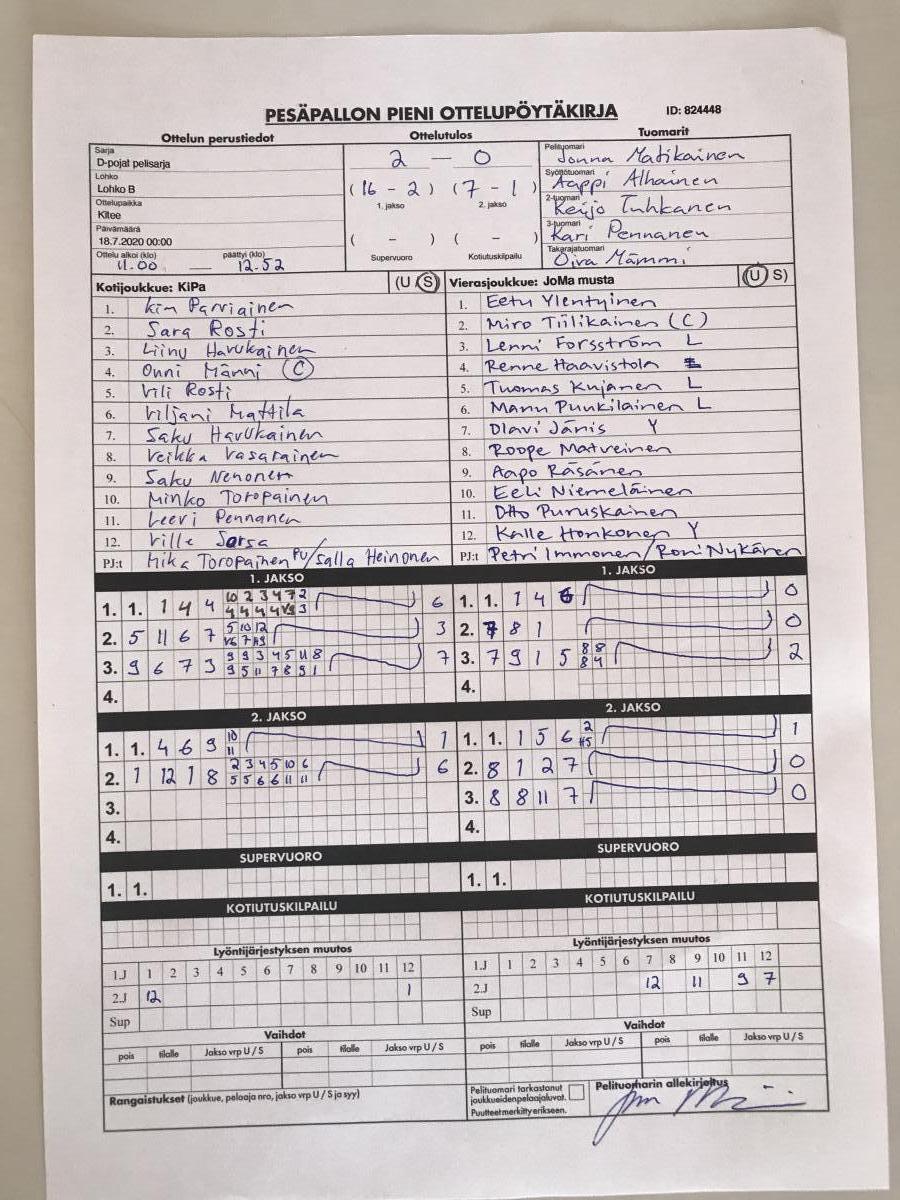 PESÄPALLON PIENI OTTELUPÖYTÄKIRJA ID: 824448
Ottelun perustiedot Ottelutulos Tuomarit
Sarja
D-pojat pelisarja
Lohko
Lohko B
Ottelupaikka
Kitee
Päivämäärä
18.7.2020 00:00
Ottelu alkoi (klo) päättyi (klo)
11.00 — 12.52
2 — 0
(16 - 2) (7 - 1)
1. jakso 2. jakso
( - ) ( - )
Supervuoro Kotiutuskilpailu
Pelituomari
Jonna Matikainen
Syöttötuomari
Aappi Alhainen
2-tuomari
Keijo Tuhkanen
3-tuomari
Kari Pennanen
Takarajatuomari
Oiva Mämmi
Kotijoukkue: KiPa (U S)
1. Kim Parviainen
2. Sara Rosti
3. Liinu Havukainen
4. Onni Männi (C)
5. Vili Rosti
6. Viljami Mattila
7. Saku Havukainen
8. Veikka Vasarainen
9. Saku Nenonen
10. Minko Toropainen
11. Leevi Pennanen
12. Ville Sorsa
PJ:t Mika Toropainen PV/Salla Heinonen
Vierasjoukkue: JoMa musta (U S)
1. Eetu Ylentyinen
2. Miro Tiilikainen (C)
3. Lenni Forsström L
4. Renne Haavistola
5. Tuomas Kujanen L
6. Manu Puukilainen L
7. Olavi Jänis Y
8. Roope Matveinen
9. Aapo Räsänen
10. Eeli Niemeläinen
11. Otto Puruskainen
12. Kalle Honkonen Y
PJ:t Petri Immonen/Roni Nykänen
1. JAKSO
1. 1. 1 4 4 10 2 3 4 7 2 6
2. 5 11 6 7 5 10 12 3
3. 9 6 7 3 9 9 3 4 5 11 8 7
9 5 11 7 8 9 1
4.
1. JAKSO
1. 1. 1 4 6 0
2. 7 8 1 0
3. 7 9 1 5 8 8 2
8 4
4.
2. JAKSO
1. 1. 4 6 9 10 1
11
2. 1 12 1 8 2 3 4 5 10 6 6
5 5 6 6 11 11
3.
4.
2. JAKSO
1. 1. 1 5 6 2 1
2. 8 1 2 7 0
3. 8 8 11 7 0
4.
SUPERVUORO
1. 1.
SUPERVUORO
1. 1.
KOTIUTUSKILPAILU
KOTIUTUSKILPAILU
Lyöntijärjestyksen muutos
1.J 1 2 3 4 5 6 7 8 9 10 11 12
2.J 12 1
Sup
Lyöntijärjestyksen muutos
1.J 1 2 3 4 5 6 7 8 9 10 11 12
2.J 12 11 9 7
Sup
Vaihdot
pois tilalle Jakso vrp U / S pois tilalle Jakso vrp U / S
Vaihdot
pois tilalle Jakso vrp U / S pois tilalle Jakso vrp U / S
Rangaistukset (joukkue, pelaaja nro, jakso vrp U / S ja syy)
Pelituomari tarkastanut
joukkueidenpelaajaluvat.
Puutteetmerkitty erikseen.
Pelituomarin allekirjoitus